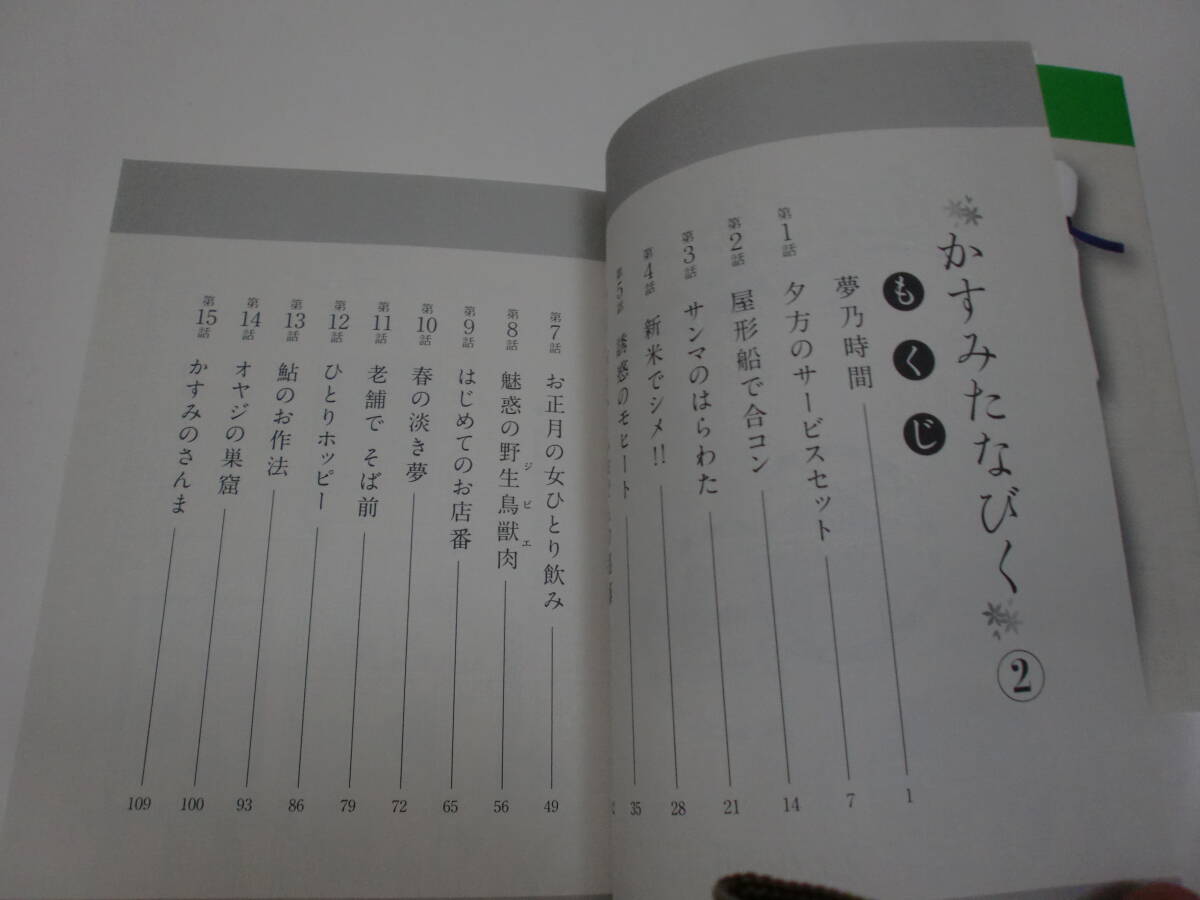 かすみたなびく ②
もくじ
夢乃時間 1
第1話 夕方のサービスセット 7
第2話 屋形船で合コン 14
第3話 サンマのはらわた 21
第4話 新米でシメ!! 28
第5話 誘惑のモヒート 35
第7話 お正月の女ひとり飲み 49
第8話 魅惑の野生鳥獣肉 56
ジビエ
第9話 はじめてのお店番 65
第10話 春の淡き夢 72
第11話 老舗で そば前 79
第12話 ひとりホッピー 86
第13話 鮎のお作法 93
第14話 オヤジの巣窟 100
第15話 かすみのさんま 109